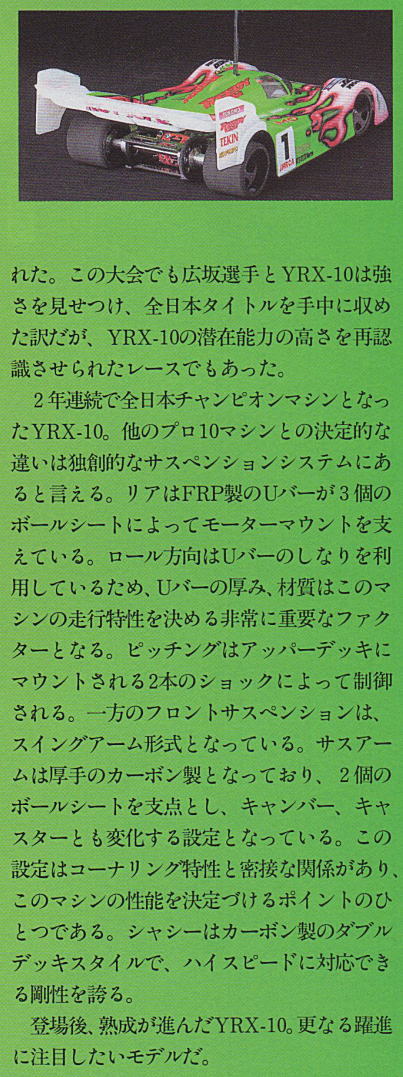 TEKIN
1
れた。この大会でも広坂選手とYRX-10は強
さを見せつけ、全日本タイトルを手中に収め
た訳だが、YRX-10の潜在能力の高さを再認
識させられたレースでもあった。
　2年連続で全日本チャンピオンマシンとなっ
たYRX-10。他のプロ10マシンとの決定的な
違いは独創的なサスペンションシステムにあ
ると言える。リアはFRP製のUバーが3個の
ボールシートによってモーターマウントを支
えている。ロール方向はUバーのしなりを利
用しているため、Uバーの厚み、材質はこのマ
シンの走行特性を決める非常に重要なファク
ターとなる。ピッチングはアッパーデッキに
マウントされる2本のショックによって制御
される。一方のフロントサスペンションは、
スイングアーム形式となっている。サスアー
ムは厚手のカーボン製となっており、2個の
ボールシートを支点とし、キャンバー、キャ
スターとも変化する設定となっている。この
設定はコーナリング特性と密接な関係があり、
このマシンの性能を決定づけるポイントのひ
とつである。シャシーはカーボン製のダブル
デッキスタイルで、ハイスピードに対応でき
る剛性を誇る。
　登場後、熟成が進んだYRX-10。更なる躍進
に注目したいモデルだ。